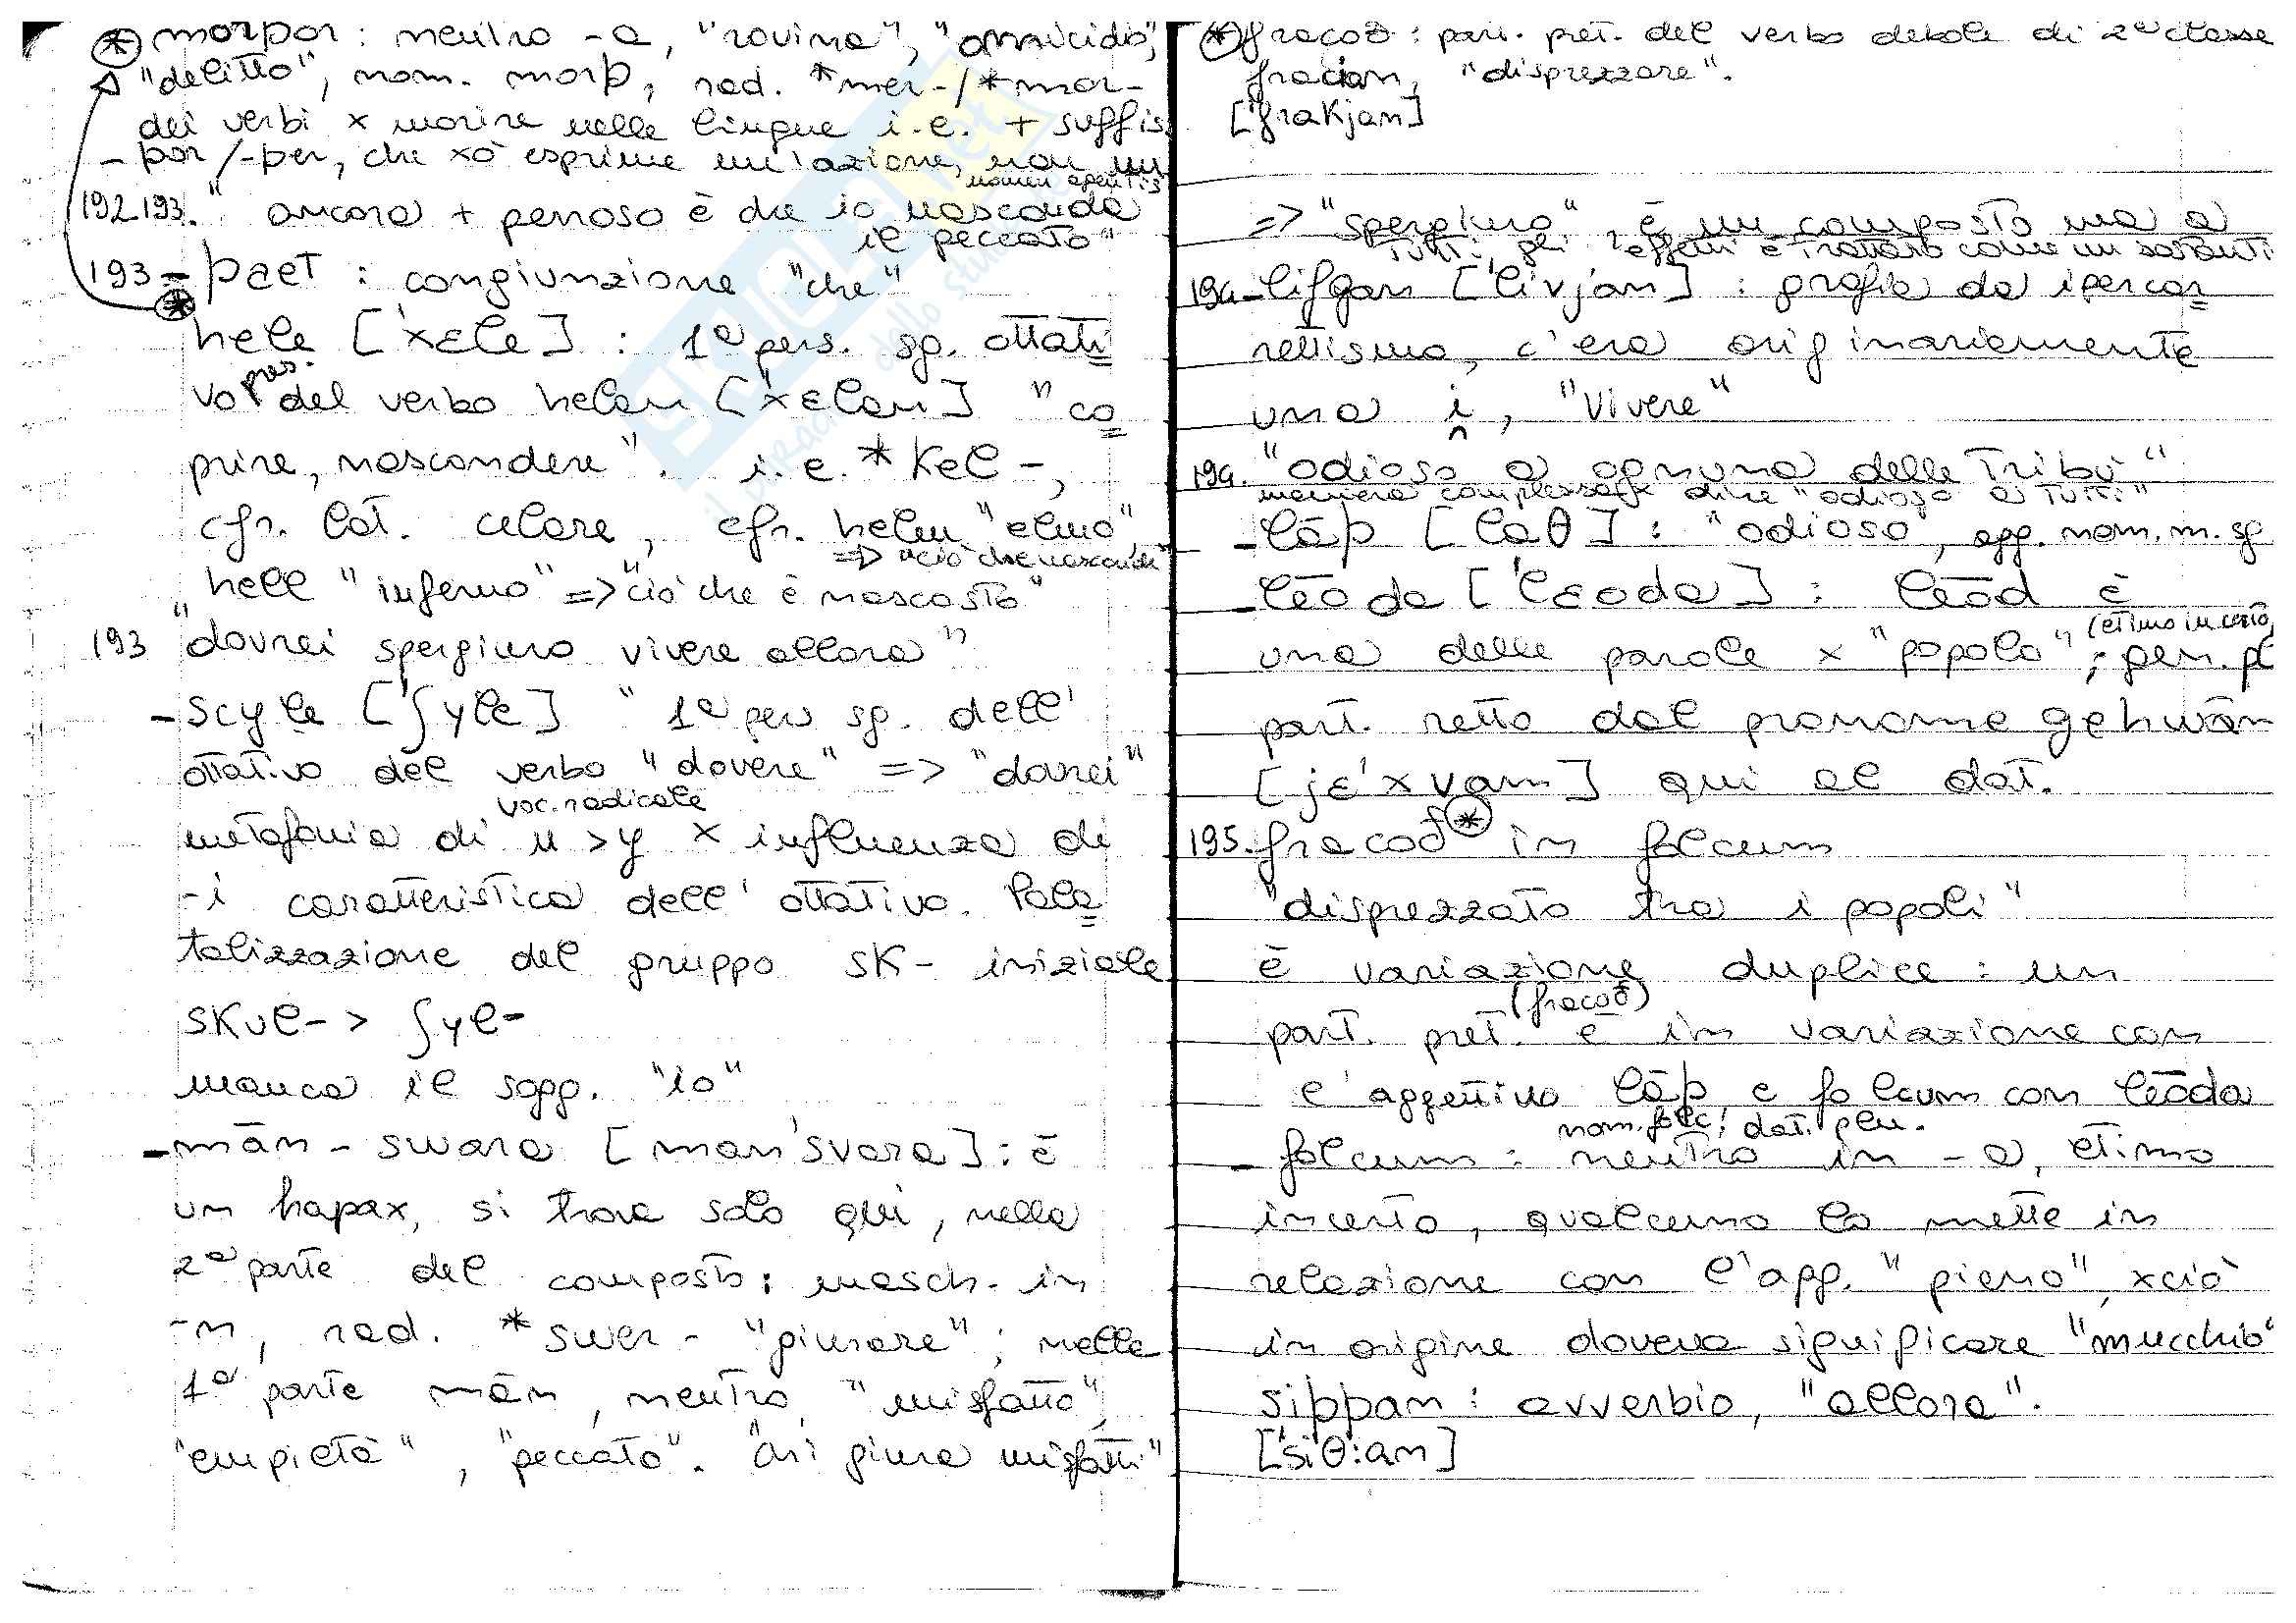 * morþor : neutro -a, "rovina", "omicidio",
"delitto", nom. morþ, rad. *mer-/*mor-
dei verbi x morire nelle lingue i.e. + suffis.
-þor/-þer, che xò esprime un'azione, non un
nomen agentis
192 193. "ancora + penoso è che io nasconda
il peccato"
193 - þaet : congiunzione "che"
* hele ['xɛle] : 1ª pers. sg. ottati
vo pres. del verbo helan ['xɛlan] "co
prire, nascondere". i.e. *kel-,
cfr. lat. celare, cfr. helm "elmo",
=> "ciò che nasconde"
hell "inferno" => "ciò che è nascosto"
193 "dovrei spergiuro vivere allora"
- scyle ['ʃyle] " 1ª pers sg. dell'
ottativo del verbo "dovere" => "dovrei"
voc. radicale
metafonia di u > y x influenza di
-i caratteristica dell'ottativo. Pala
talizzazione del gruppo sk- iniziale
skul- > ʃyl-
manca il sogg. "io"
- mān-swara [man'svara] : è
un hapax, si trova solo qui, nella
2ª parte del composto : masch. in
-n, rad. *swer- "giurare" ; nella
1ª parte mān, neutro, "misfatto",
"empietà", "peccato". "chi giura misfatti"
* fracoð : part. pret. del verbo debole di 2ª classe
fracian, "disprezzare".
['frakjan]
=> "spergiuro" è un composto ma a
tutti gli effetti è trattato come un sostanti
194 - lifgan ['livjan] : grafia da ipercor
rettismo, c'era originariamente
una i, "vivere"
194. "odioso a ognuna delle tribù"
maniera complessa x dire "odioso a tutti"
- lāþ [laθ] : "odioso", agg. nom. m. sg
- lēoda ['lɛoda] : lēod è
una delle parole x "popolo" (etimo incerto) ; gen. pl
part. retto dal pronome gehwām
[jɛ'xvam] qui al dat.
195. fracoð * in folcum
"disprezzato tra i popoli"
è variazione duplice : un
part. pret. (fracoð) è in variazione con
l'aggettivo lāþ e folcum con lēoda
nom. folc! dat. plu.
- folcum : neutro in -a, etimo
incerto, qualcuno lo mette in
relazione con l'agg. "pieno", xciò
in origine doveva significare "mucchio"
siþþan : avverbio, "allora".
['siθ:an]